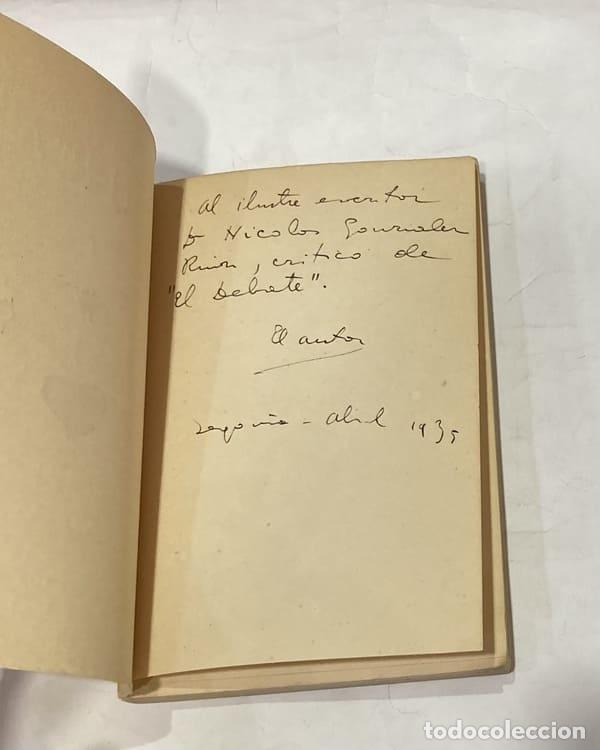 Al ilustre escritor
D Nicolas Gonzalez
Ruiz, critico de
"El Debate".
El autor
Segovia - Abril 1935
todocoleccion